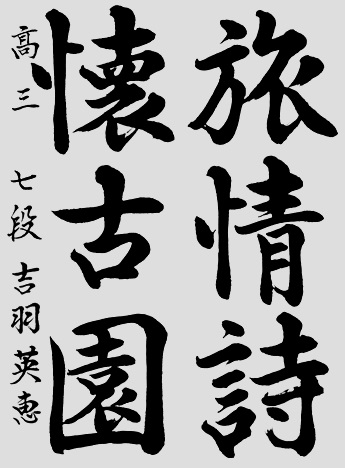 旅情詩
懐古園
高三 七段 吉羽英恵